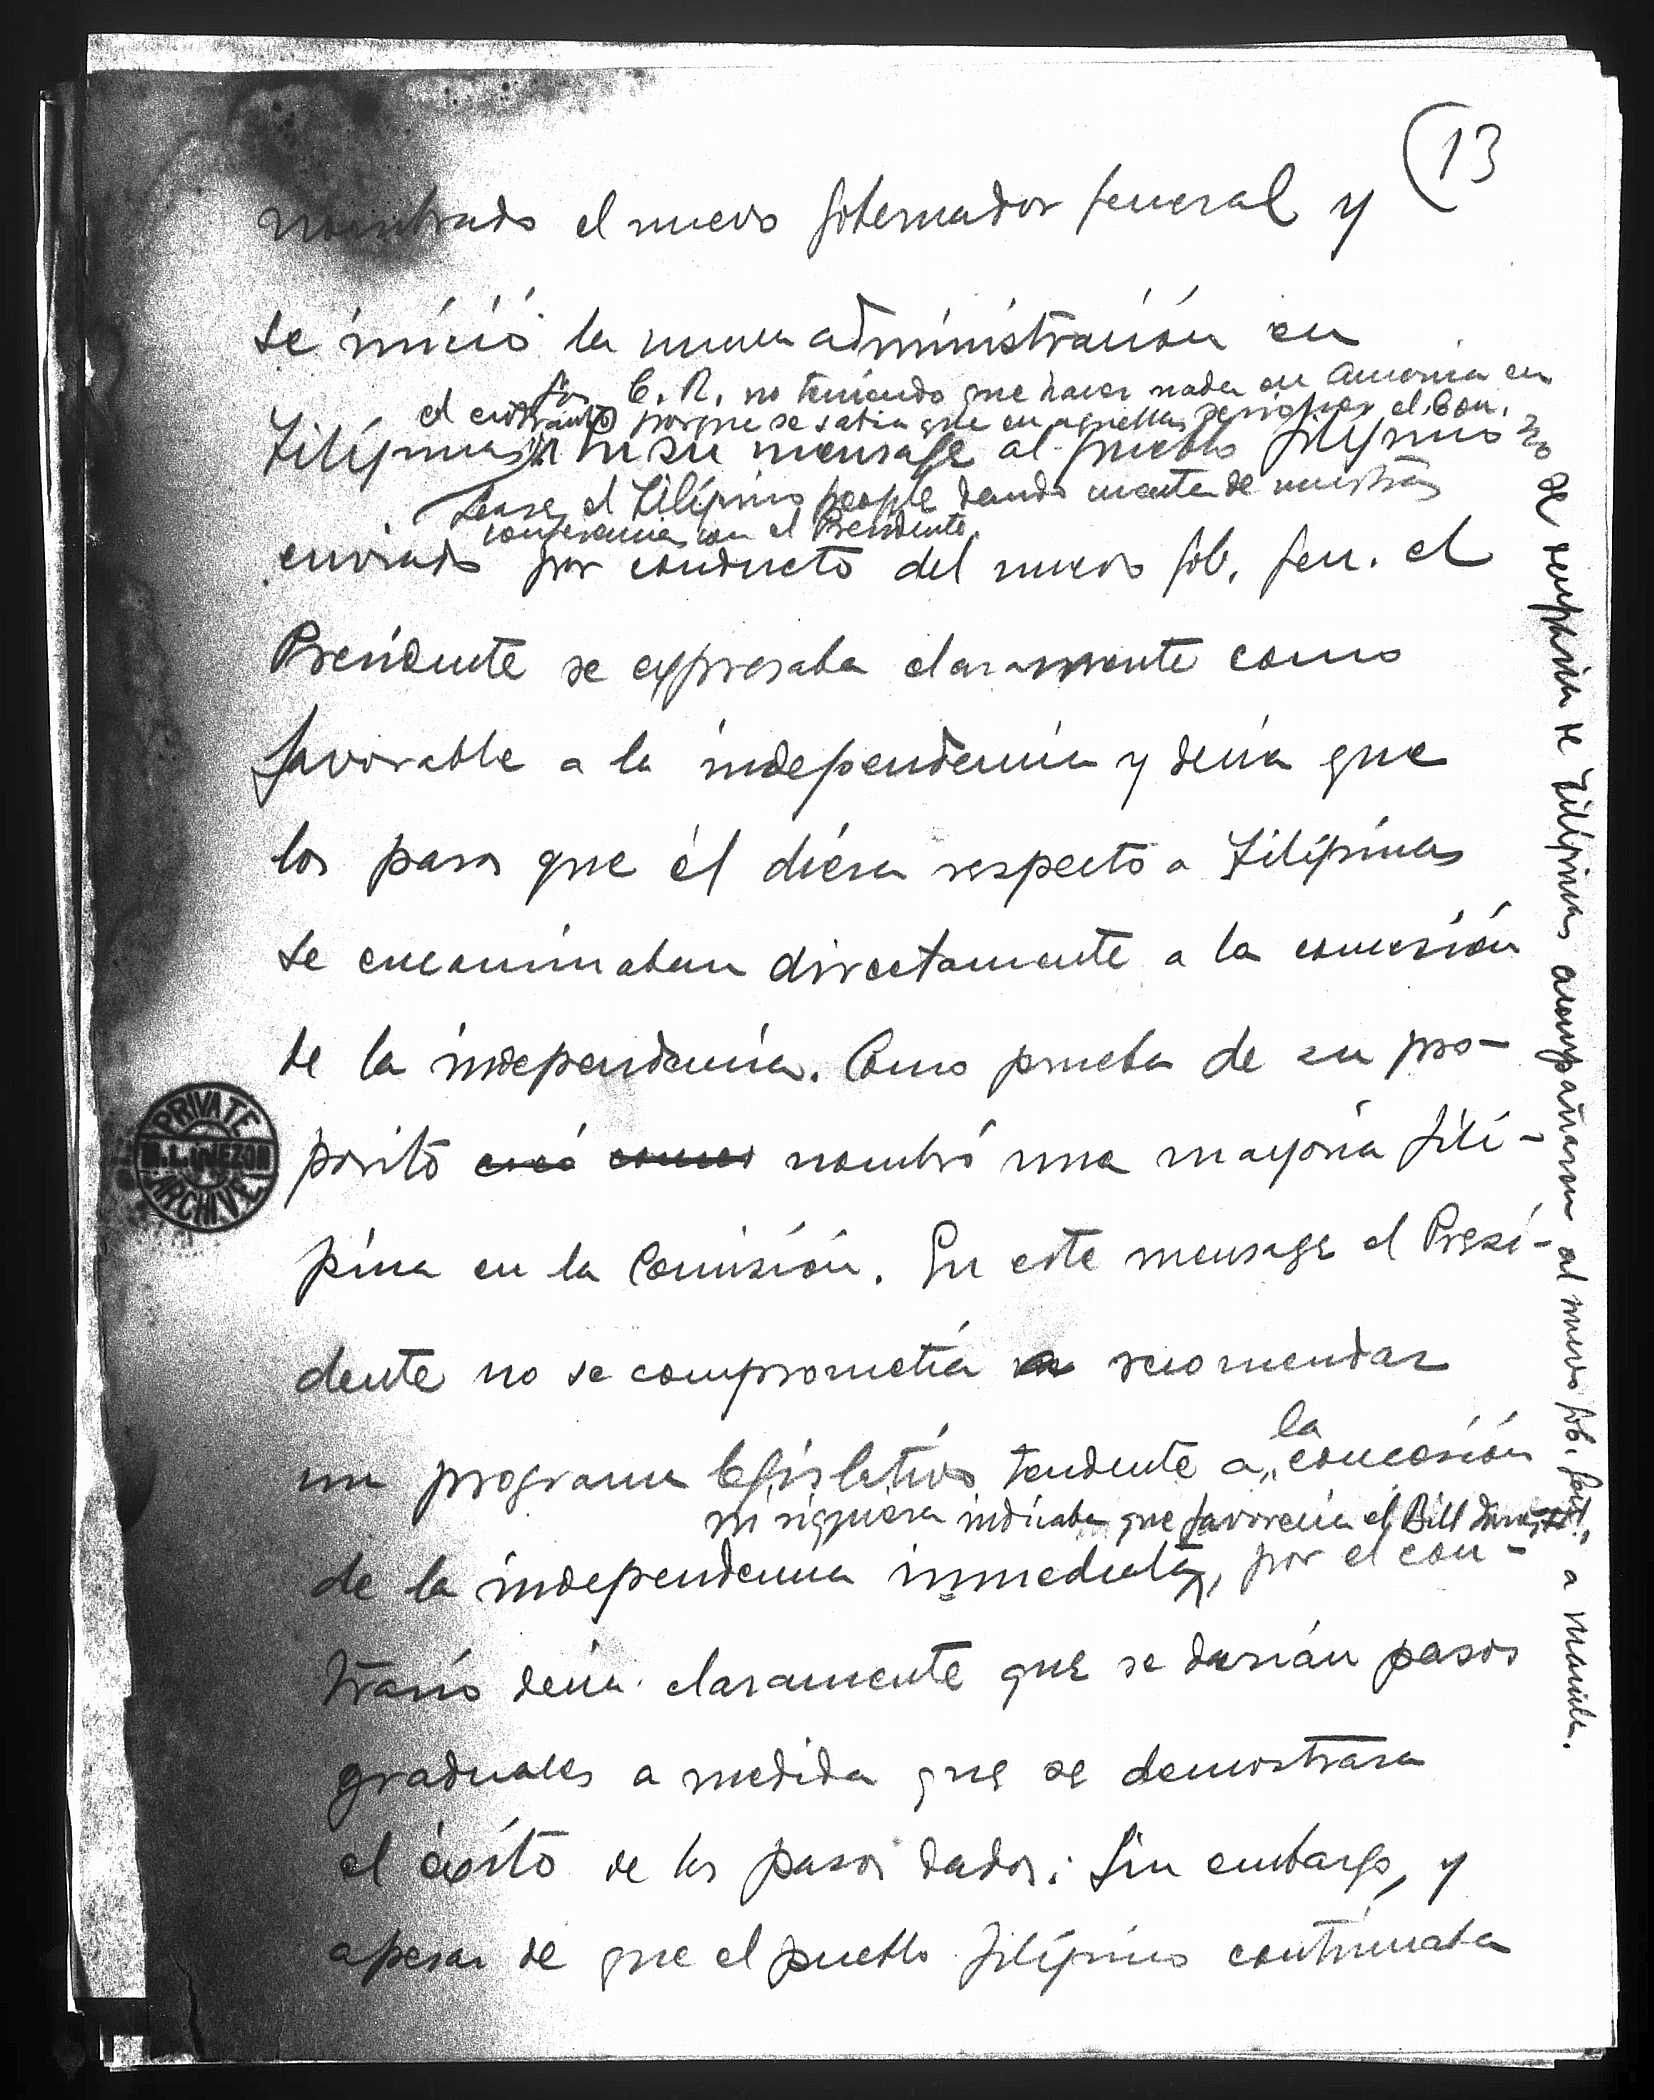 (13
nombrado el nuevo gobernador general y
se inició la nueva administración en
C. R. no teniendo que hacer nada en America en
el entretanto porque se sabia que en aquellas sesiones el Con.
Filipinas. En su mensage al pueblo filipino
Lease el Filipino people dando cuenta de nuestras
conferencias con el Presidente.
enviado por conducto del nuevo gob. gen. el
Presidente se expresaba claramente como
favorable a la independencia y decia que
los pasos que él diera respecto a Filipinas
se encaminaban directamente a la concesión
de la independencia. Como prueba de su pro-
posito nombró una mayoria fili-
pina en la Comisión. En este mensage el Presi-
dente no se comprometía a recomendar
la
un programa legislativo tendente a concesión
ni siquiera indicaba que favorecia el Bill
de la independencia inmediata, por el con-
trario decia claramente que se darián pasos
graduales a medida que se demostrara
el éxito de los pasos dados. Sin embargo, y
apesar de que el pueblo filipino continuaba
no se ocuparia de Filipinas acompañaron al nuevo gob. gen. a Manila.
PRIVATE
M.L. QUEZON
ARCHIVE